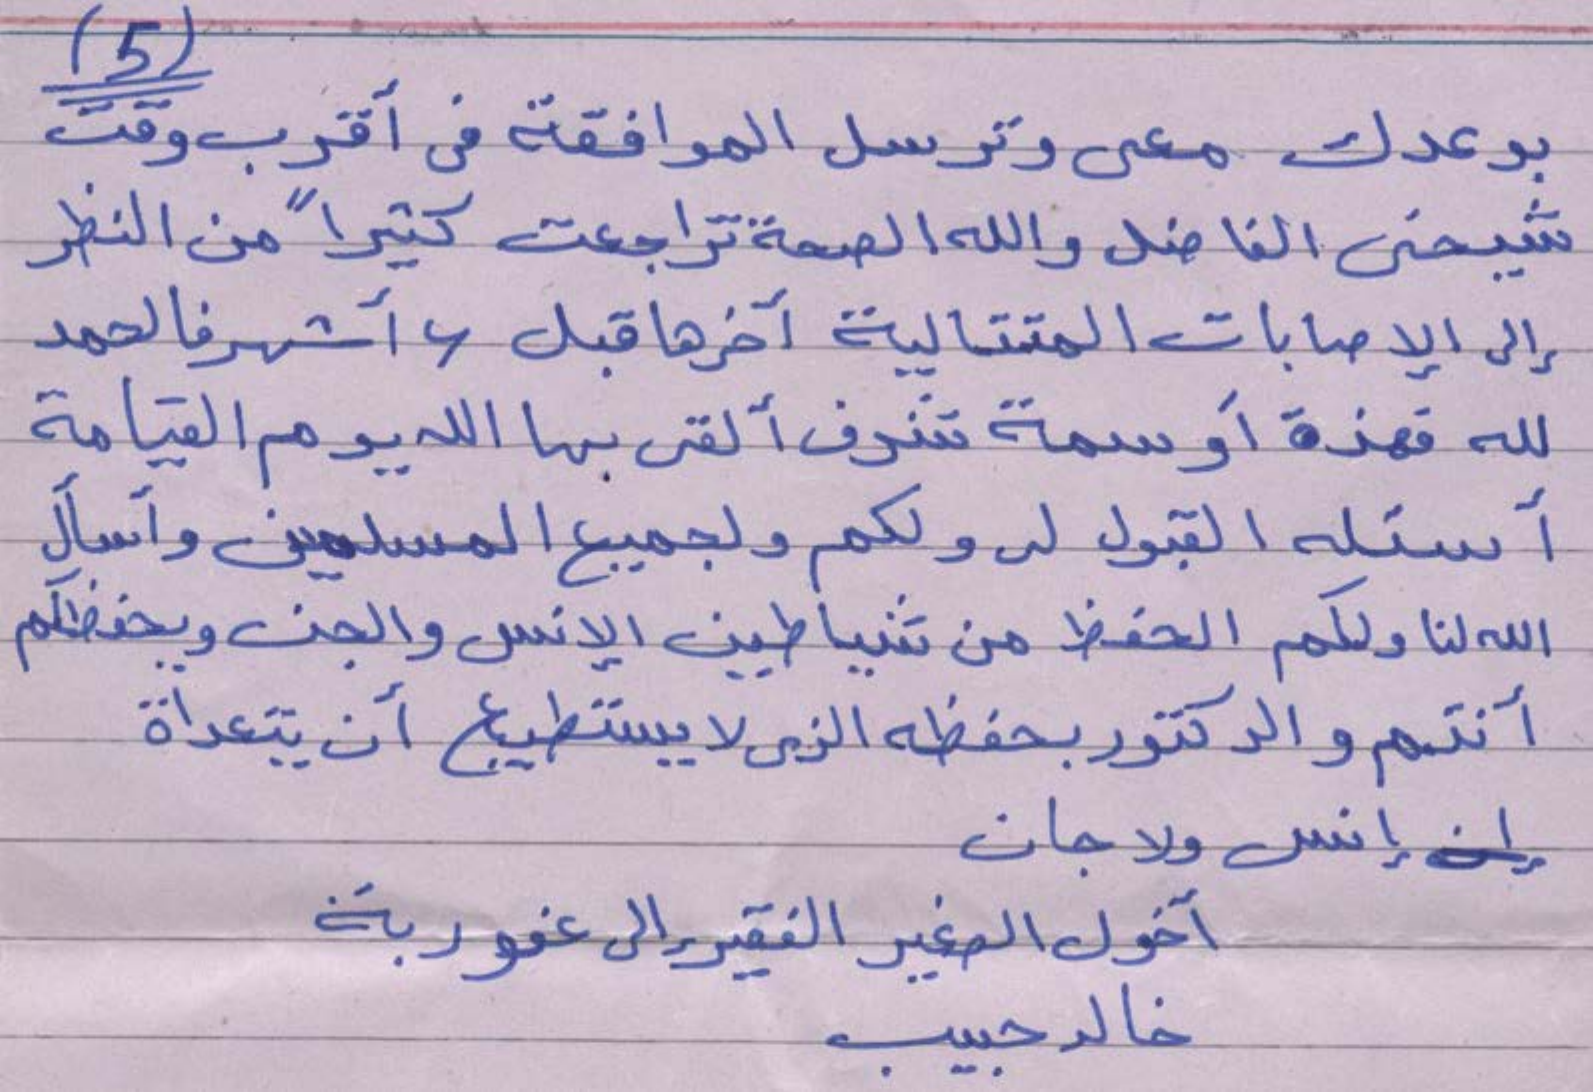 (5)
بوعدك معى وترسل الموافقة فى أقرب وقت
شيخى الفاضل والله الصحة تراجعت كثيراً من النظر
إلى الإصابات المتتالية آخرها قبل 4 أشهر فالحمد
لله فهذة أوسمة شرف ألقى بها الله يوم القيامة
أسئله القبول لى ولكم ولجميع المسلمين وأسأل
الله لنا ولكم الحفظ من شياطين الإنس والجن ويحفظكم
أنتم والدكتور بحفظه الذى لا يستطيع أن يتعداة
إنس ولا جان
أخوك الصغير الفقير إلى عفو ربة
خالد حبيب